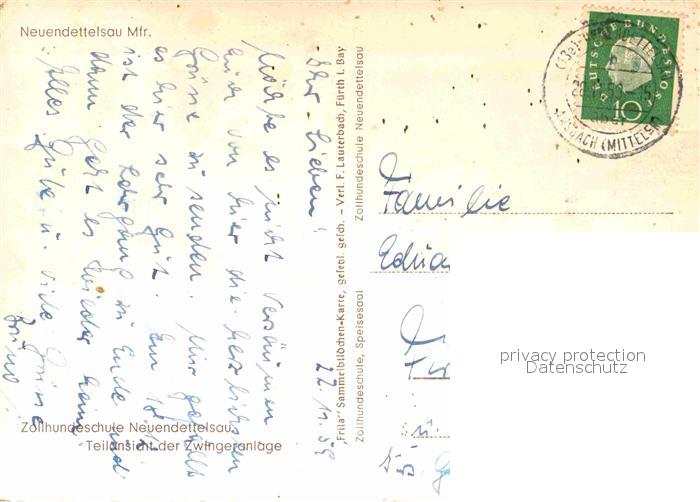 Neuendettelsau Mfr.
22.11.59
Ihr Lieben!
Möchte es nicht versäumen
euch von hier die herzlichsten
Grüße zu senden. Mir gefällt
es hier sehr gut. Am 18.12.
ist der Lehrgang zu Ende und
dann geht es wieder heim.
Alles Gute u. viele Grüße
Zollhundeschule Neuendettelsau
Teilansicht der Zwingeranlage
„Frila" Sammelbildchen-Karte, gesetzl. gesch. – Verl. F. Lauterbach, Fürth i. Bay
Zollhundeschule, Speisesaal
Zollhundeschule Neuendettelsau
DEUTSCHE BUNDESPOST
10
ANSBACH (MITTELFR
Familie
Edua
privacy protection
Datenschutz